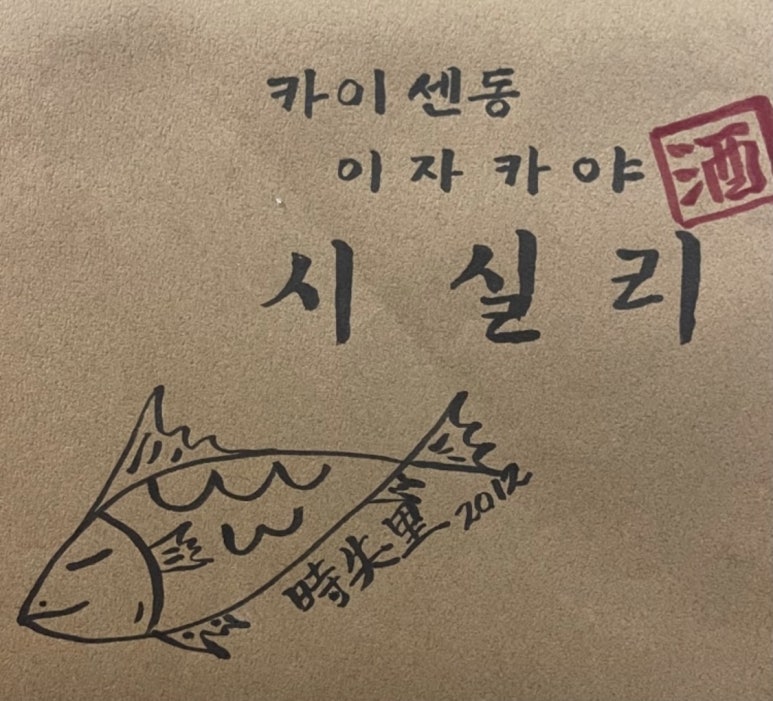 카이센동
이자카야 酒
시실리
時失里 2012